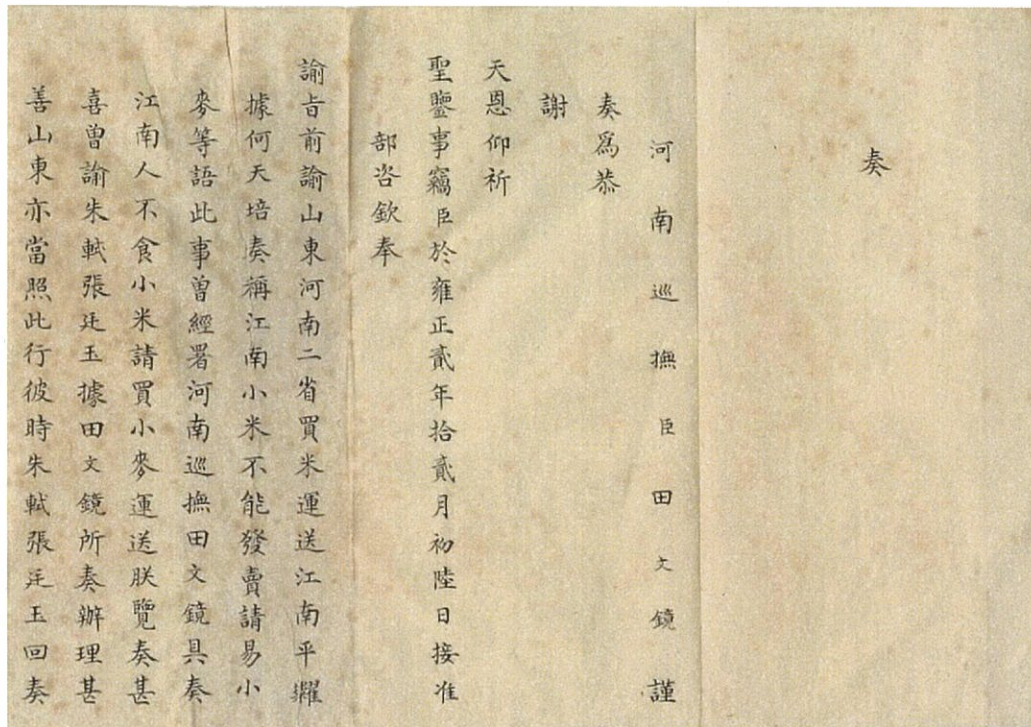 奏
河南巡撫臣田文鏡謹
奏爲恭
謝
天恩仰祈
聖鑒事竊臣於雍正貳年拾貳月初陸日接准
部咨欽奉
諭旨前諭山東河南二省買米運送江南平糶
據何天培奏稱江南小米不能發賣請易小
麥等語此事曾經署河南巡撫田文鏡具奏
江南人不食小米請買小麥運送朕覽奏甚
喜曾諭朱軾張廷玉據田文鏡所奏辦理甚
善山東亦當照此行彼時朱軾張廷玉回奏